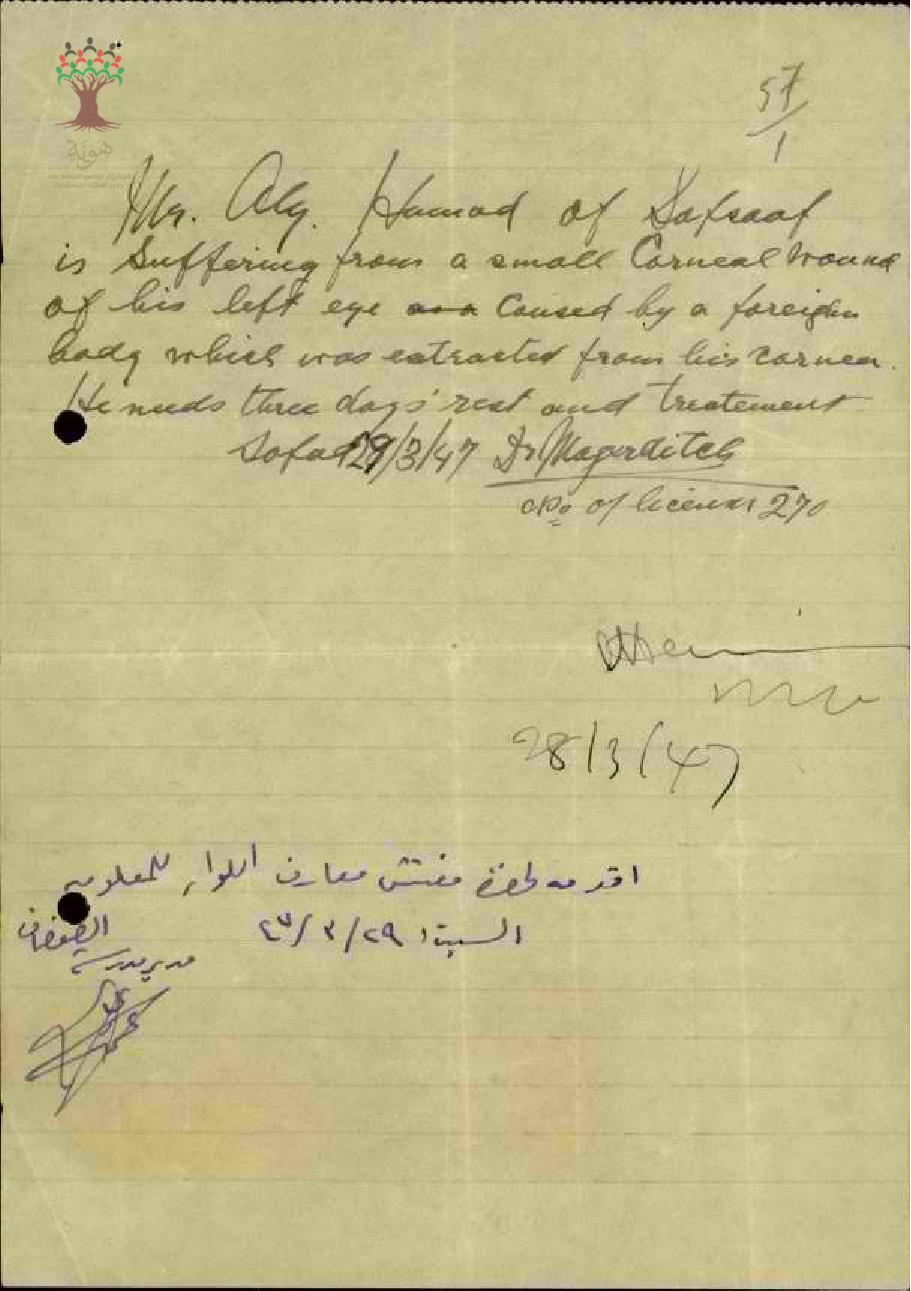 هوية
57/1
Mr. Aly. Hamad of Safsaaf
is Suffering from a small Corneal Wound
of his left eye caused by a foreign
body which was extracted from his cornea.
He needs three days' rest and treatement
Safad 29/3/47 Dr Magarditch
No of license 270
28/3/47
اقدمه لحضرة مفتش معارف اللواء للمعلومية
السبت ٢٩/٣/٤٧
الصفصاف
مدير مدرسة